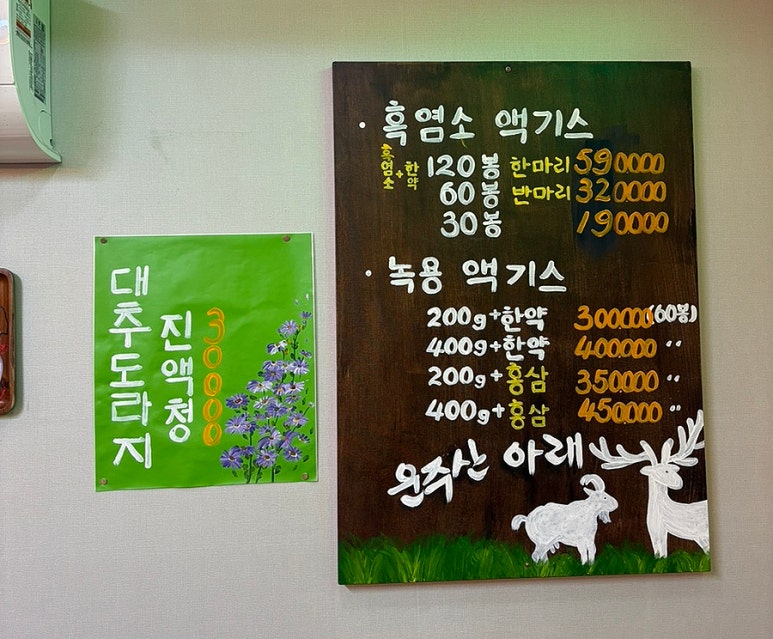 대추도라지
진액청
30000
· 흑염소 액기스
흑염소+한약
120봉 한마리 590000
60봉 반마리 320000
30봉 190000
· 녹용 액기스
200g+한약 300000 (60봉)
400g+한약 400000 〃
200g+홍삼 350000 〃
400g+홍삼 450000 〃
운주산 아래